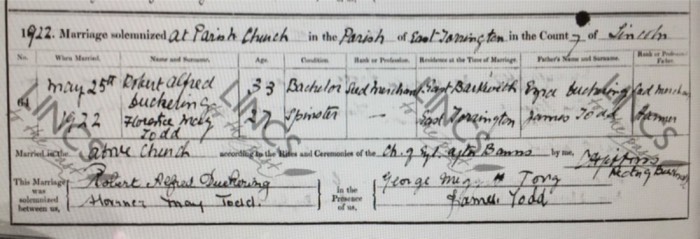 1922. Marriage solemnized at Parish Church in the Parish of East Torrington in the County of Lincoln
No. When Married. Name and Surname. Age. Condition. Rank or Profession. Residence at the Time of Marriage. Father's Name and Surname.
May 25th Robert Alfred 33 Bachelor Seed merchant East Barkwith Ezra Duckering Seed merchant
Duckering
1922 Florence May 27 Spinster — East Torrington James Todd Farmer
Todd
LINCS LINCS LINCS LINCS
Married in the above Church according to the Rites and Ceremonies of the Ch. of Eng. after Banns by me,
This Marriage was solemnized between us, Robert Alfred Duckering in the Presence of us, George
Florence May Todd James Todd